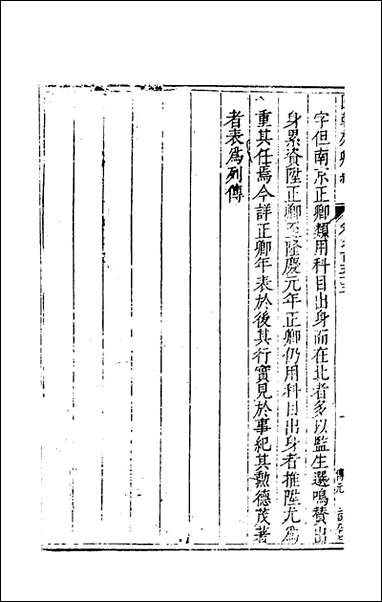 字但南京正卿類用科目出身而在北者多以監生選鳴贊出
身累資陞正卿至隆慶元年正卿仍用科目出身者推陞尤爲
重其任焉今詳正卿年表於後其行實見於事紀其勳德茂著
者表爲列傳